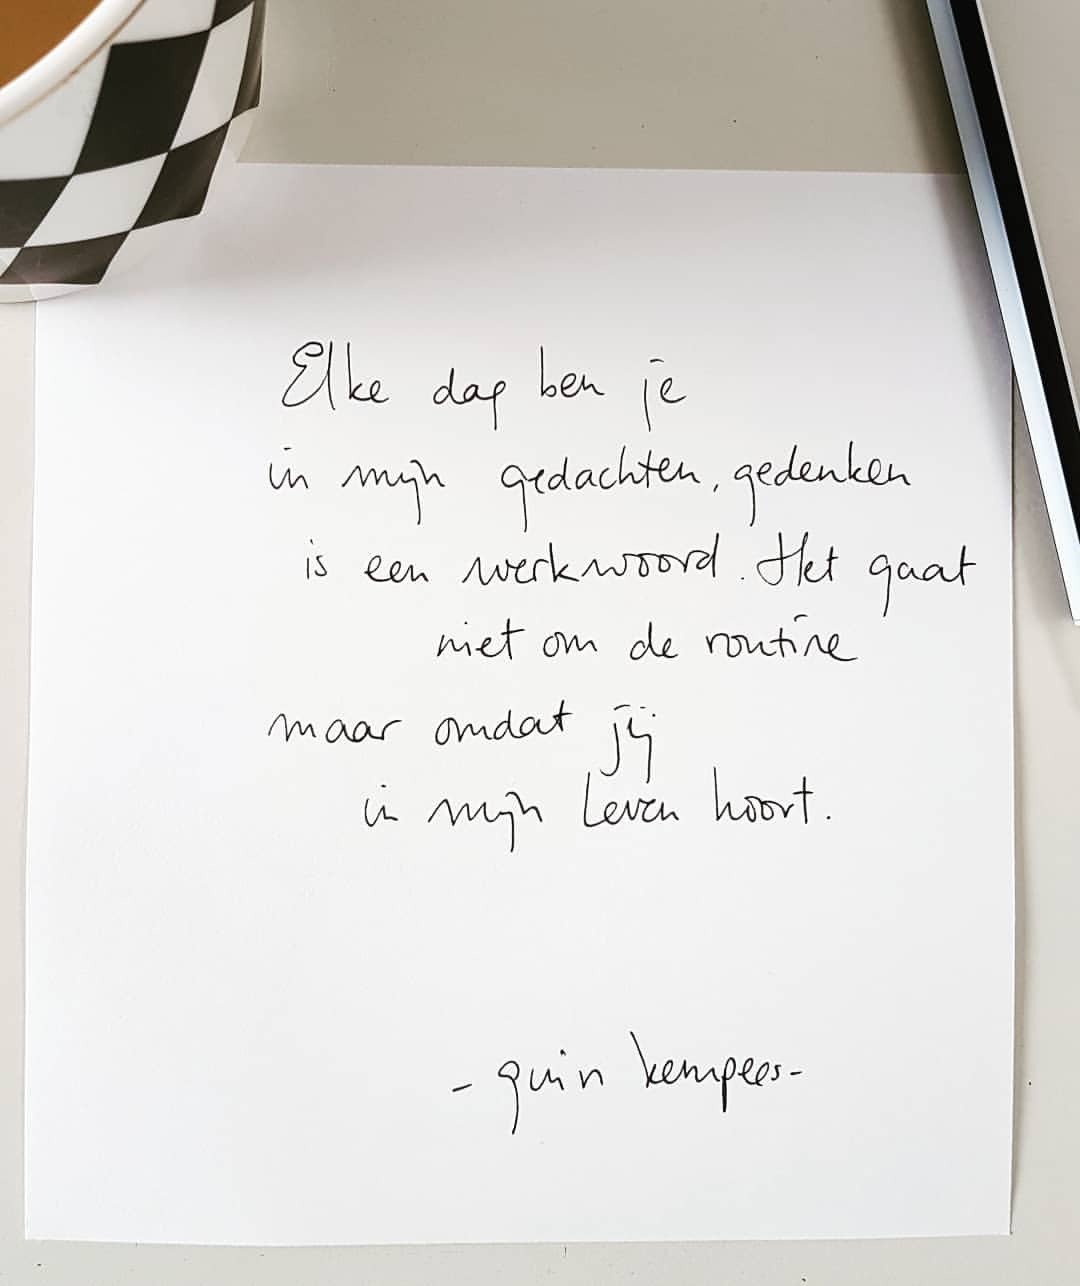 Elke dag ben je
in mijn gedachten, gedenken
is een werkwoord. Het gaat
niet om de routine
maar omdat jij
in mijn leven hoort.
- quin kempees -